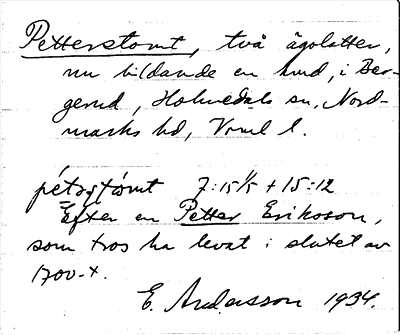 Petterstomt, två ägolotter,
nu bildande en lund, i Ber-
gerud, Holmedals sn, Nord-
marks hd, Vrml l.
pétə̣ṣtòmt 7:15 1/5 + 15:12
Efter en Petter Eriksson,
som tros ha levat i slutet av
1700-t.
E. Andersson 1934.